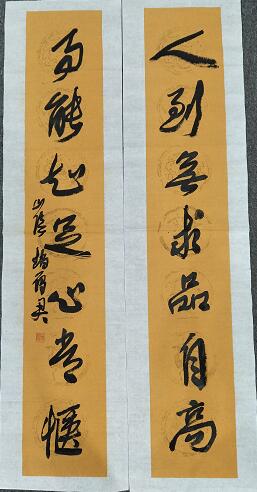 人到無求品自高
事能知足心常愜
山陰